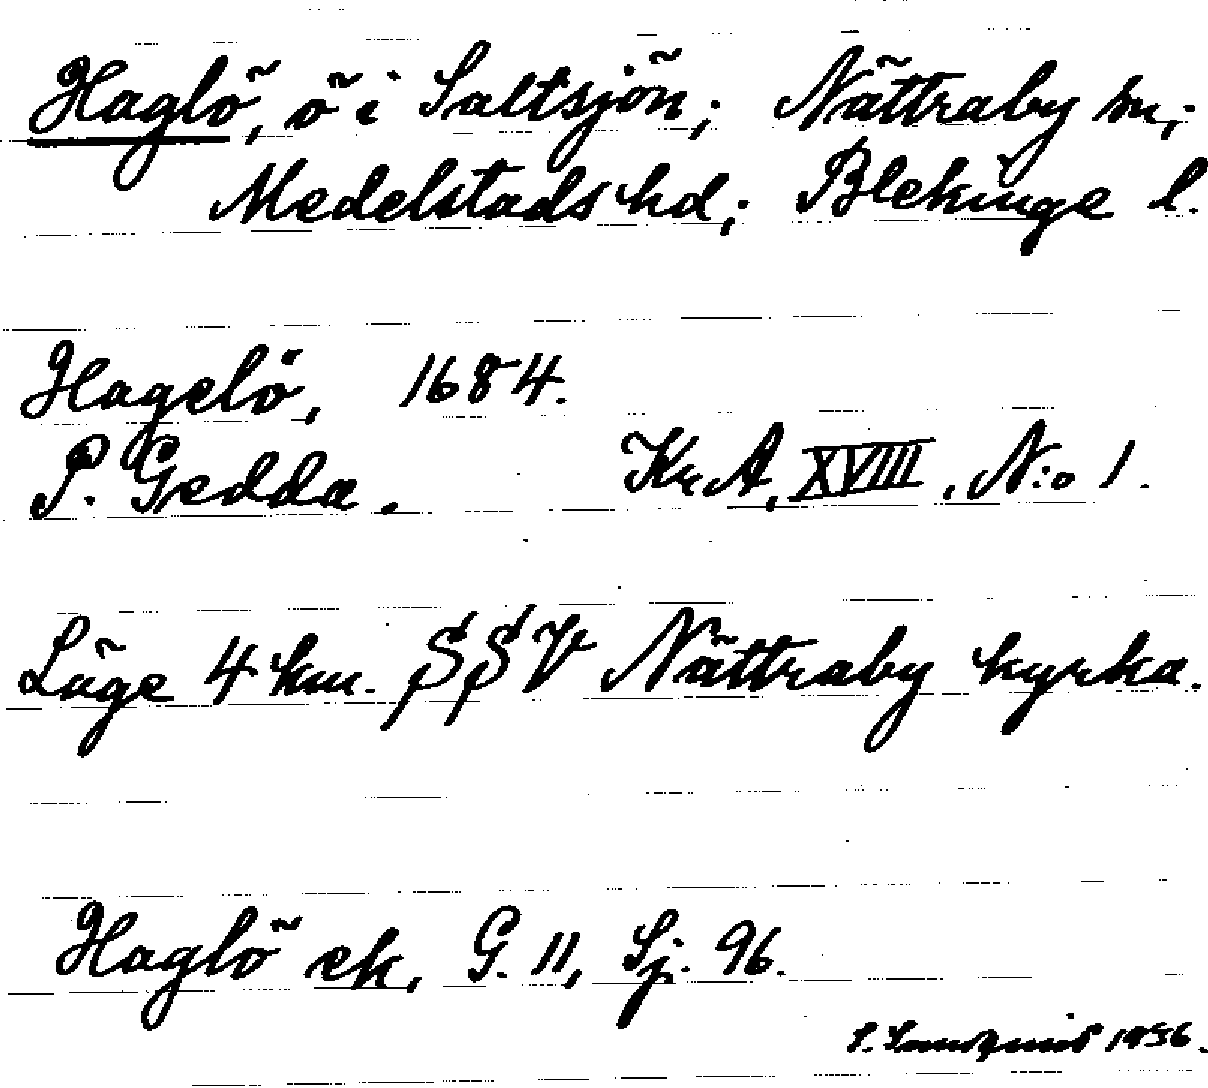 Haglö, ö i Saltsjön; Nättraby sn;
Medelstads hd; Blekinge l.
Hagelö, 1684.
P. Gedda. Kr.A, XVIII, N:o 1.
Läge 4 km. SSV Nättraby kyrka.
Haglö ek, G. 11, Sj. 96.
1936.